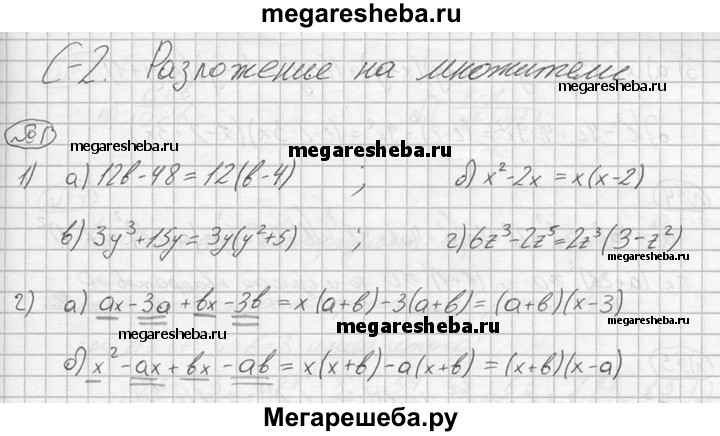 megaresheba.ru
С-2. Разложение на множители
№1
megaresheba.ru
megaresheba.ru
megaresheba.ru
1) а) 12b-48=12(b-4) ; б) x²-2x=x(x-2)
в) 3y³+15y=3y(y²+5) ; г) 6z³-2z⁵=2z³(3-z²)
2) а) ax-3a+bx-3b=x(a+b)-3(a+b)=(a+b)(x-3)
megaresheba.ru
megaresheba.ru
б) x²-ax+bx-ab=x(x+b)-a(x+b)=(x+b)(x-a)
Мегарешеба.ру